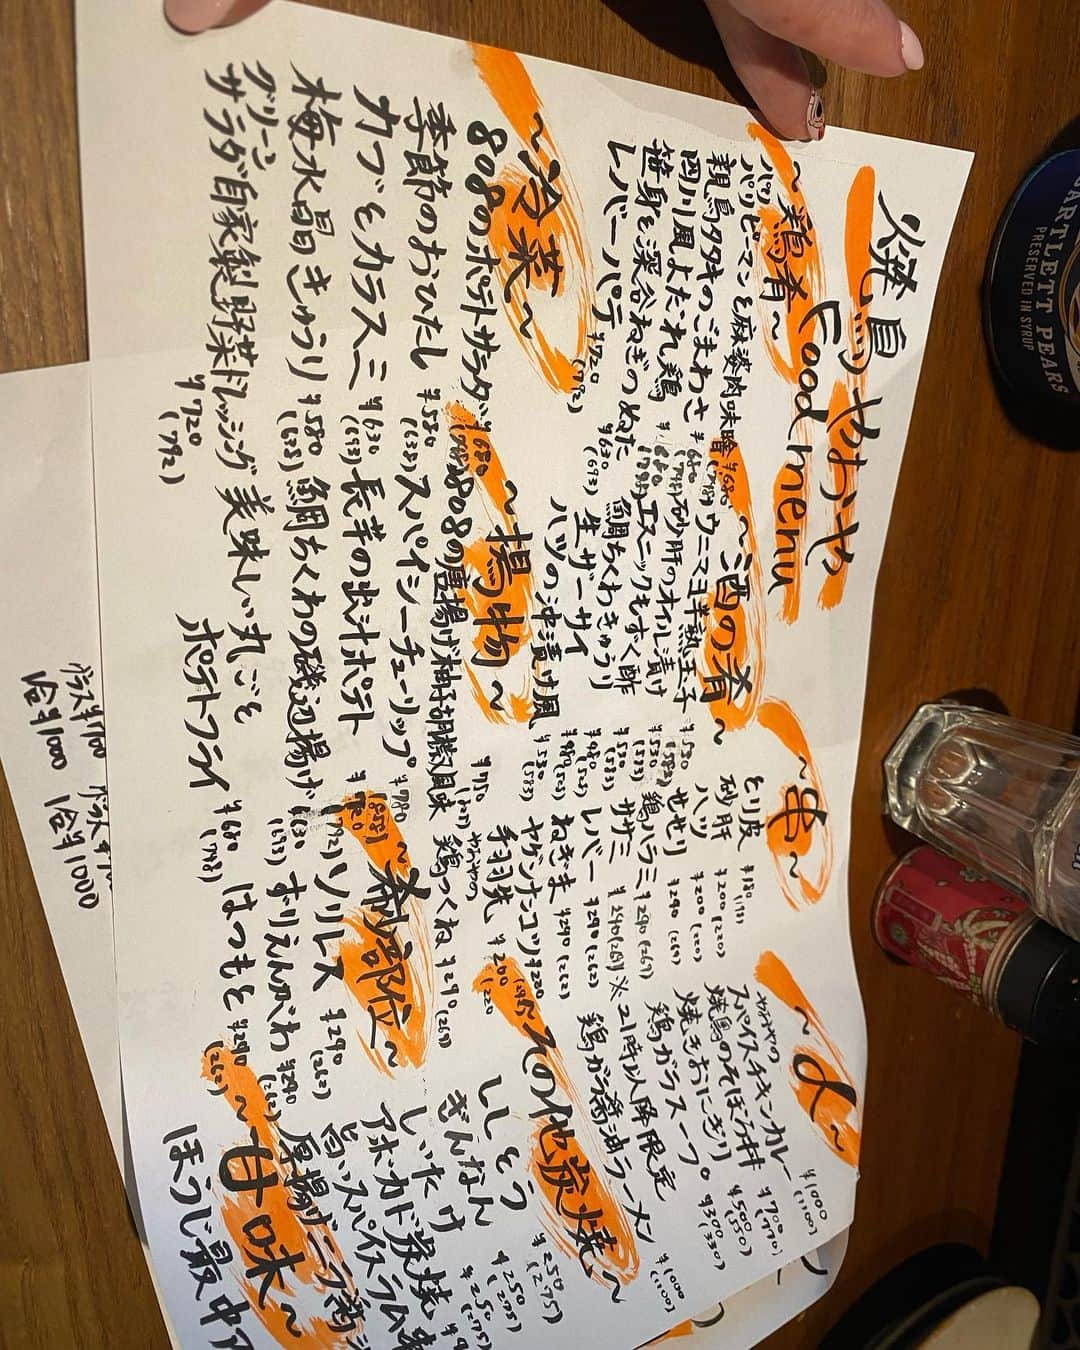 焼鳥やおや
Food menu
〜鶏肴〜
パリパリピーマンと麻婆肉味噌 ¥680 (748)
親鳥タタキのごまわさ ¥680 (748)
四川風よだれ鶏 ¥680 (748)
笹身と深谷ねぎのぬた ¥630 (693)
レバーパテ ¥720 (792)
〜酒の肴〜
ウニマヨ半熟玉子 ¥530 (583)
砂肝のオイル漬け ¥530 (583)
エスニックもずく酢 ¥530 (583)
鯛ちくわきゅうり
生ザーサイ
ハツの沖漬け風 ¥530 (583)
〜串〜
とり皮 ¥180
砂肝 ¥200 (220)
ハツ ¥200 (220)
せせり ¥240 (264)
鶏ハラミ ¥240 (264)
ササミ ¥240 (264)
レバー
ねぎま
ヤゲンナンコツ
手羽先
やおやの
鶏つくね ¥240 (264)
〜〆〜
やおやの
スパイスチキンカレー ¥1000 (1100)
焼鳥のそぼろ丼 ¥700 (770)
焼きおにぎり ¥500 (550)
鶏ガラスープ ¥300 (330)
※21時以降限定
鶏ガラ醤油ラーメン ¥1000 (1100)
〜冷菜〜
808のポテトサラダ ¥680 (748)
季節のおひたし ¥580 (638)
カブとカラスミ ¥630 (693)
梅水晶きゅうり ¥580 (638)
グリーン
サラダ自家製野菜ドレッシング
¥720 (792)
〜揚物〜
808の唐揚げ柚子胡椒風味
スパイシーチューリップ ¥780 (858)
長芋の出汁ポテト ¥720 (792)
鯛ちくわの磯辺揚げ ¥630
美味しい丸ごと
ポテトフライ ¥680 (748)
〜希少部位〜
ソリレス
すりえんがわ
はつもと
〜その他炭焼〜
ししとう ¥250 (275)
ぎんなん ¥250 (275)
しいたけ ¥250 (275)
アボカド炭焼
旨いスパイスラム
厚揚げニラ醤
〜甘味〜
ほうじ最中
グラス¥1100
1合¥1000
1合¥1000
BARTLETT PEARS
PRESERVED IN SYRUP